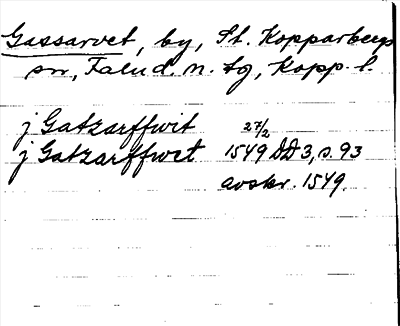 Gassarvet, by, St. Kopparbergs
sn, Falu d. n. tg, Kopp. l.
j Gatzarffwit
j Gatzarffwet 27/2 1549 DD 3, s. 93
avskr. 1549.